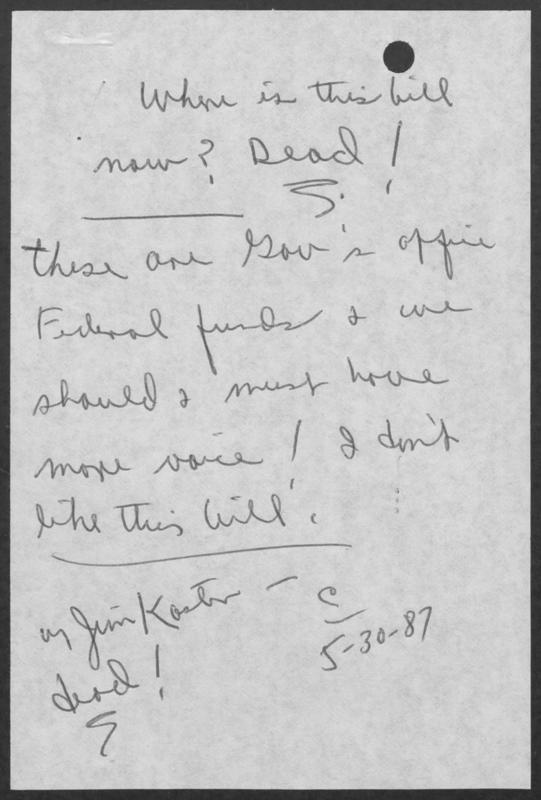 Where is this bill
now? Dead!
these are Gov's office
Federal funds & we
should & must have
more voice! I don't
like this bill.
Jim Kaster –
C
5-30-87
dead!